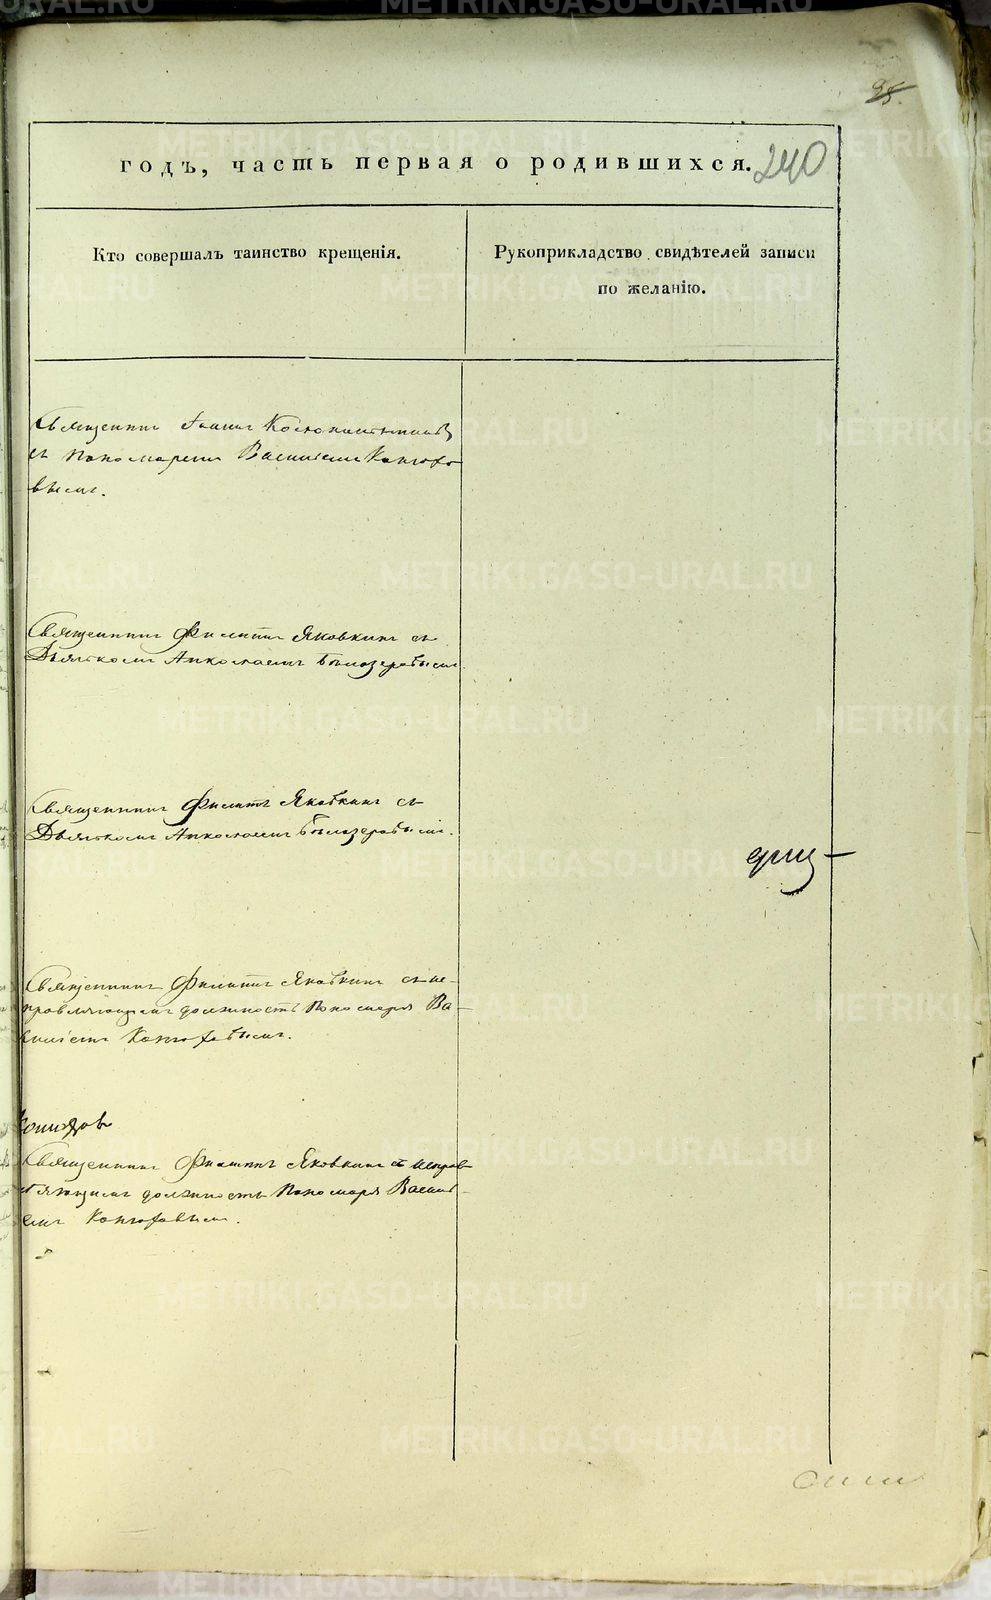 95.
годъ, часть первая о родившихся. 240
Кто совершалъ таинство крещенія.
Рукоприкладство свидѣтелей записи
по желанію.
Священникъ Іоаннъ
съ пономаремъ Василіемъ Конюхо
вымъ.
Священникъ Филиппъ Яковкинъ съ
Дьячкомъ Аполосомъ Бѣлозеровымъ.
Священникъ Филиппъ Яковкинъ съ
Дьячкомъ Аполосомъ Бѣлозеровымъ.
Священникъ Филиппъ Яковкинъ съ ис-
правляющимъ должность Пономаря Ва-
силіемъ Конюховымъ.
Священникъ Филиппъ Яковкинъ съ исправ-
ляющимъ должность Пономаря Васил-
емъ Конюховымъ.
METRIKI.GASO-URAL.RU